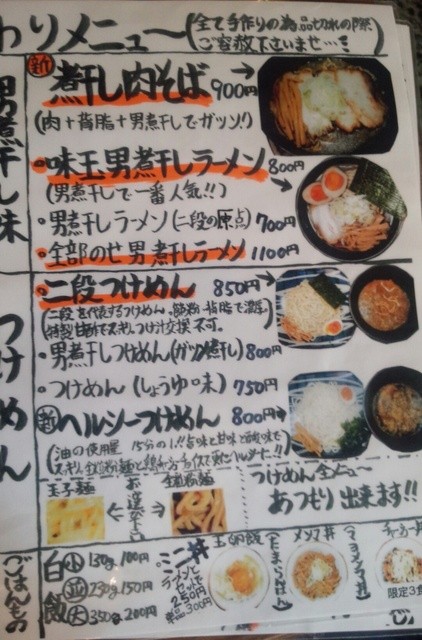 わりメニュー(全て手作りの為品切れの際
ご容赦下さいませ…!)
男煮干し味
新 煮干し肉そば 900円
(肉+背脂+男煮干しでガッツ!!)
・味玉男煮干しラーメン 800円
(男煮干しで一番人気!!)
・男煮干しラーメン(二段の原点) 700円
・全部のせ男煮干しラーメン 1100円
つけめん
・二段つけめん 850円
(二段を代表するつけめん。 背脂で濃厚
特製 つけ汁交換不可。)
・男煮干しつけめん(ガツン煮干し) 800円
・つけめん(しょうゆ味) 750円
新 ヘルシーつけめん 800円
(油の使用量 15分の1!!旨味と甘味と 味で
玉子麺
お選び下さい
全粒粉麺
つけめん全メニュー
あつもり出来ます!!
ごはんもの
白飯
小 130g 100円
並 230g 150円
大 350g 200円
ミニ丼
ラーメンと
セットで
250円
単品300円
玉卵飯
(たまらんはん)
メンマ丼
(マヨメンマ丼)
チャーシュー丼
限定3食